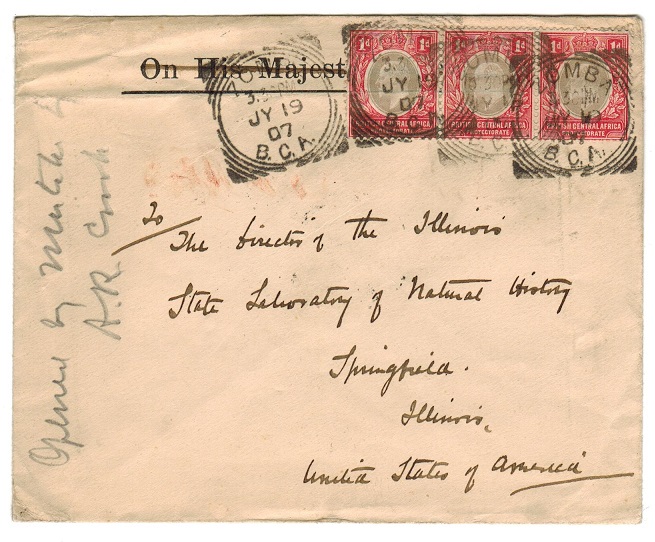 On His Majest
ZOMBA
3.20PM
JY 19
07
B.C.A.
1d 1d
BRITISH CENTRAL AFRICA
PROTECTORATE
1d 1d
BRITISH CENTRAL AFRICA
PROTECTORATE
1d 1d
BRITISH CENTRAL AFRICA
PROTECTORATE
JY 19
07
ZOMBA
JY 19
07
B.C.A.
To
The Director of the Illinois
State Laboratory of Natural History
Springfield.
Illinois,
United States of America
Opened by Mistake
A.R.